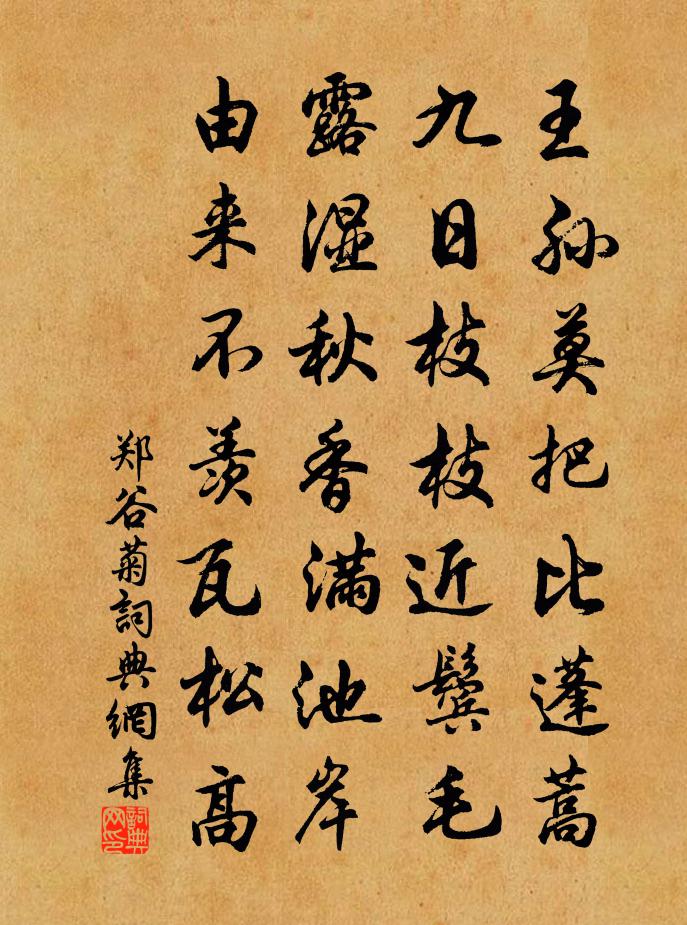 王孙莫把比蓬蒿
九日枝枝近鬓毛
露湿秋香满池岸
由来不羡瓦松高
郑谷菊詞典網集
詞典网印